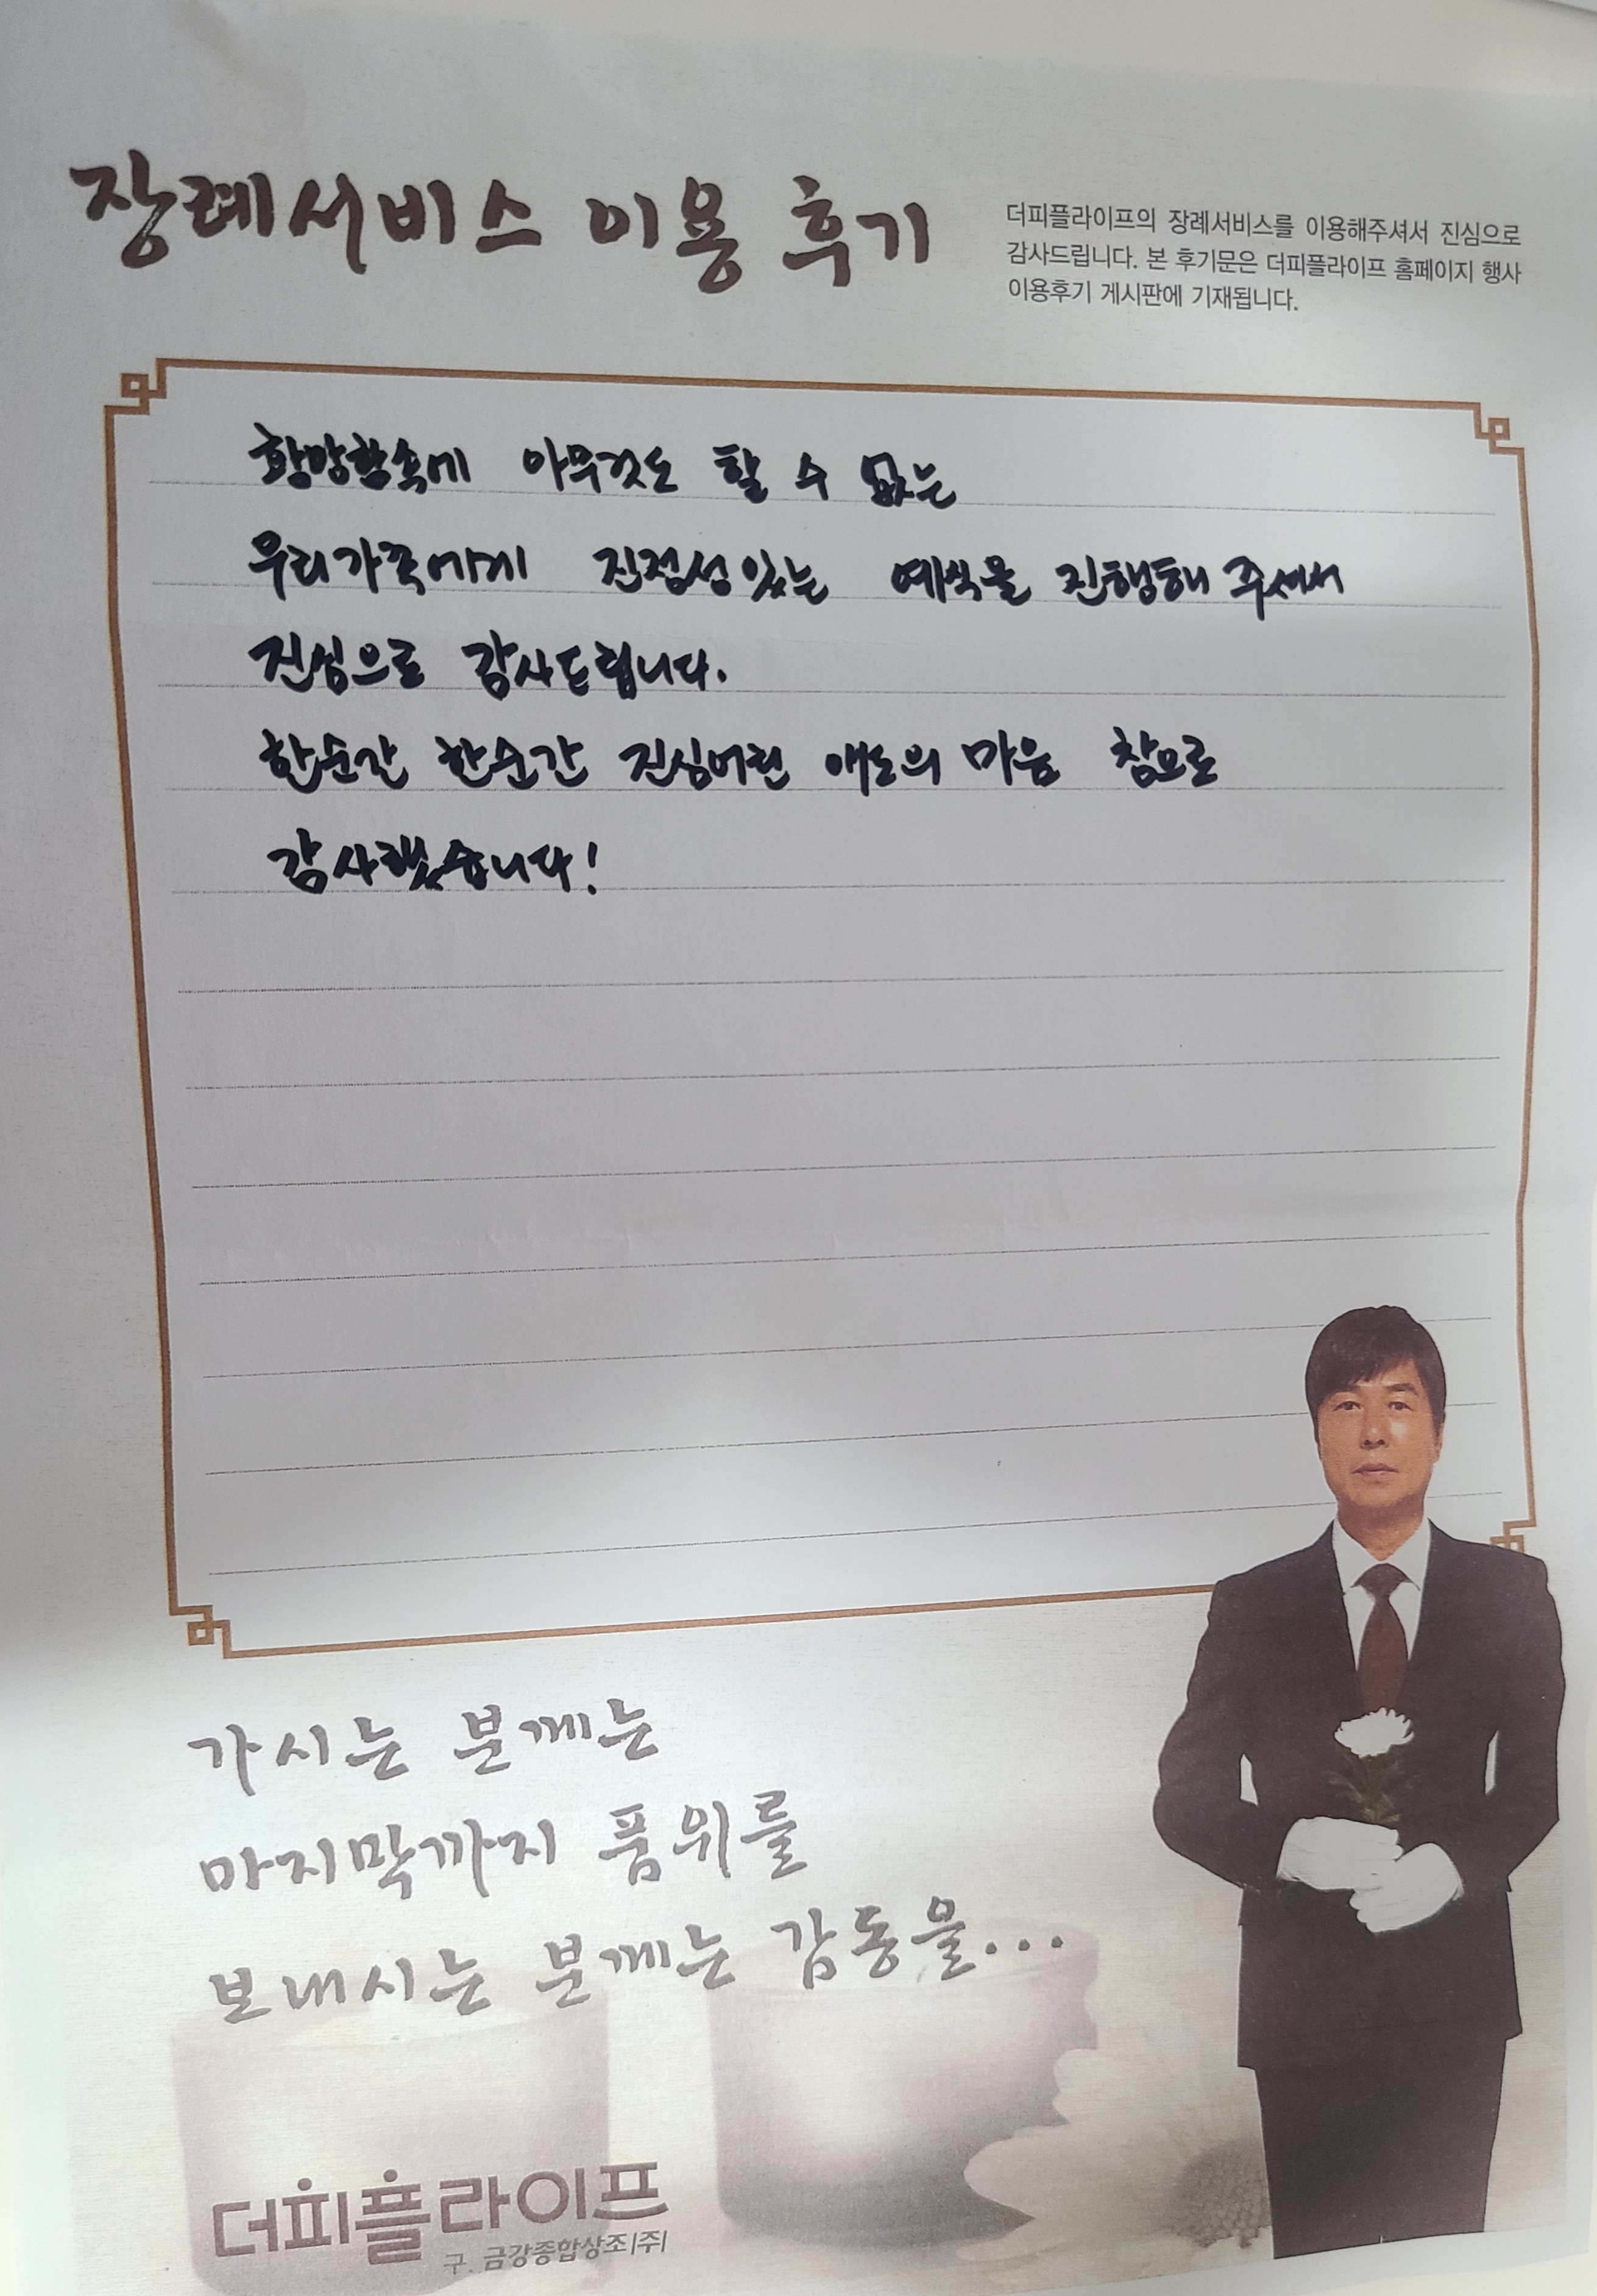 장례서비스 이용 후기
더피플라이프의 장례서비스를 이용해주셔서 진심으로
감사드립니다. 본 후기문은 더피플라이프 홈페이지 행사
이용후기 게시판에 기재됩니다.
황망함속에 아무것도 할 수 없는
우리가족에게 진정성있는 예식을 진행해 주셔서
진심으로 감사드립니다.
한순간 한순간 진심어린 애도의 마음 참으로
감사했습니다!
가시는 분께는
마지막까지 품위를
보내시는 분께는 감동을...
더피플라이프
구. 금강종합상조|주|